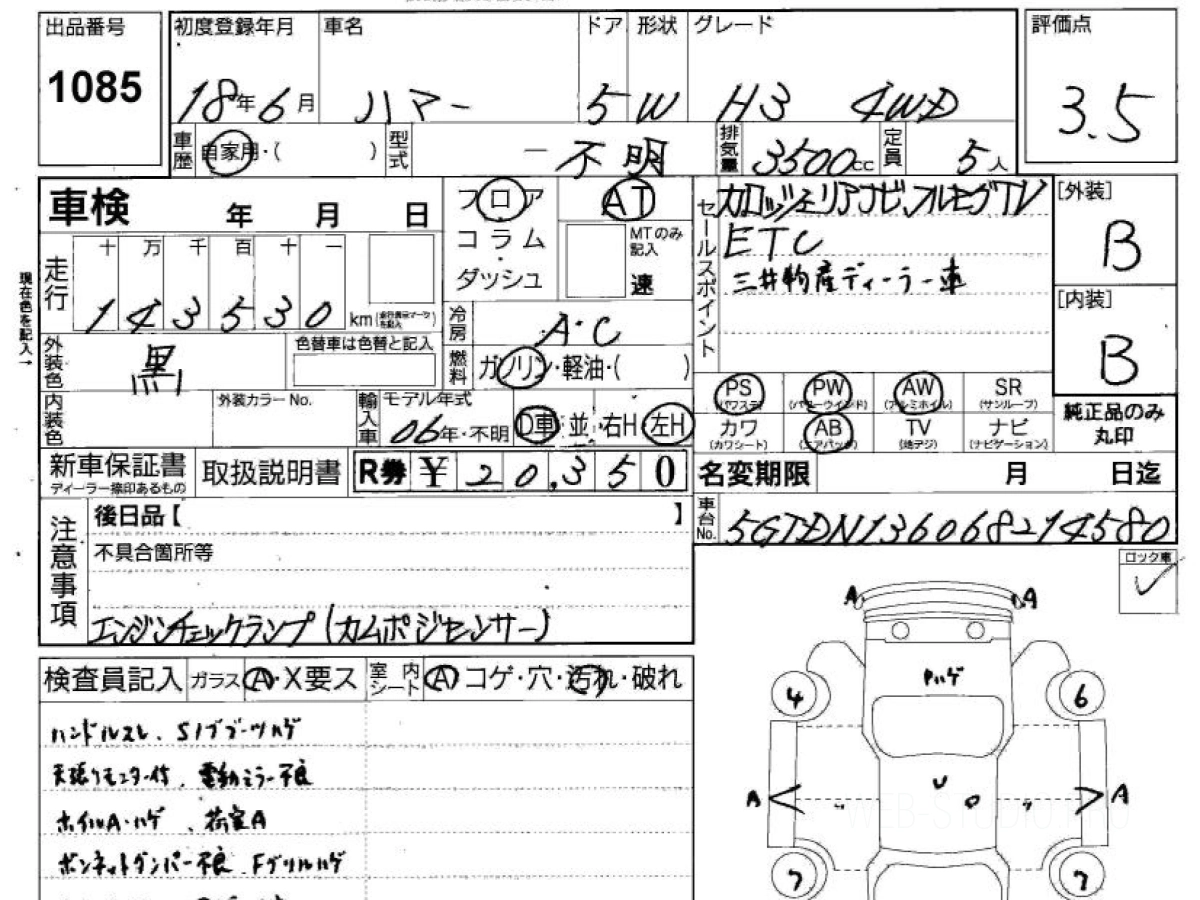 出品番号 1085
初度登録年月 18年6月
車名 ハマー
ドア 5
形状 W
グレード H3 4WD
評価点 3.5
車歴 自家用・( )
型式 ー不明
排気量 3500cc
定員 5人
車検 年 月 日
フロア
コラム
ダッシュ
AT
MTのみ記入
速
セールスポイント
カロッジェリアナビ、フルセグTV
ETC
三井物産ディーラー車
[外装] B
[内装] B
現在色を記入→
走行 十 万 千 百 十 一
143530 km
冷房 A・C
燃料 ガソリン・軽油・( )
外装色 黒
色替車は色替と記入
内装色
外装カラーNo.
輸入車 モデル年式
06年・不明
D車・並 右H・左H
PS (パワステ)
PW (パワーウインド)
AW (アルミホイル)
SR (サンルーフ)
カワ (カワシート)
AB (エアバック)
TV (地デジ)
ナビ (ナビゲーション)
純正品のみ丸印
新車保証書
ディーラー捺印あるもの
取扱説明書
R券 ¥20,350
名変期限 月 日迄
車台No. 5GTDN136068214580
注意事項
後日品【 】
不具合箇所等
エンジンチェックランプ(カムポジセンサー)
ロック車
検査員記入
ガラス A・X要ス
室内シート A コゲ・穴・汚れ・破れ
ハンドルスレ、S/ブブーツハゲ
天張りモニター付、電動ミラー不良
ホイルA・ハゲ、荷室A
ボンネットダンパー不良、Fグリルハゲ
A A
Pハゲ
4 6
A A
7 7
WEB-STUDIO.PRO